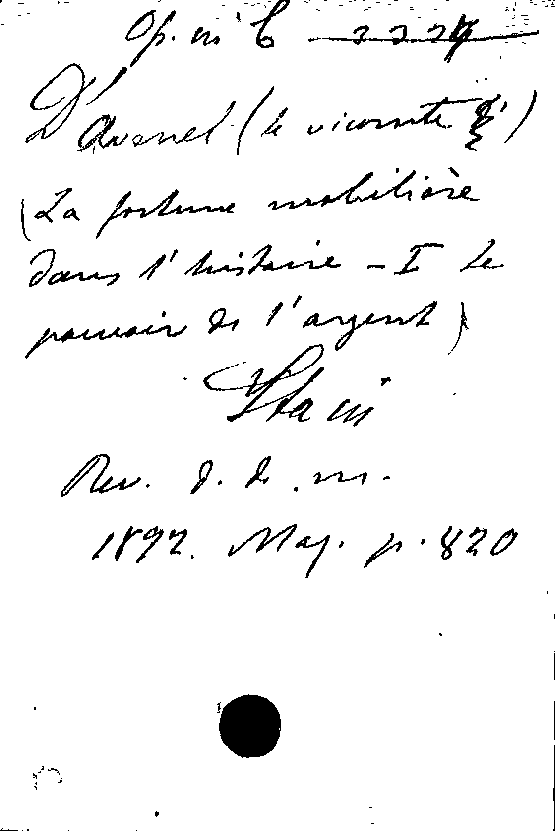 Op. in 6
D'Avenel (le vicomte d')
(La fortune mobilière
dans l'histoire - I Le
pouvoir de l'argent)
Rev. d. d. m.
1892. Maj. p. 820